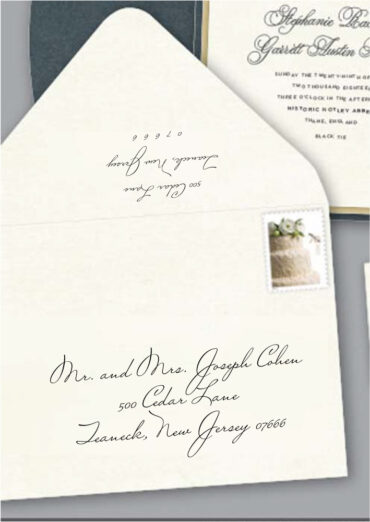 Stephanie
Garrett Austin
SUNDAY THE TWENTY-NINTH
TWO THOUSAND
THREE O'CLOCK IN THE
HISTORIC NOTLEY
THAME, ENGLAND
BLACK TIE
500 Cedar Lane
Teaneck, New Jersey
07666
Mr. and Mrs. Joseph Cohen
500 Cedar Lane
Teaneck, New Jersey 07666